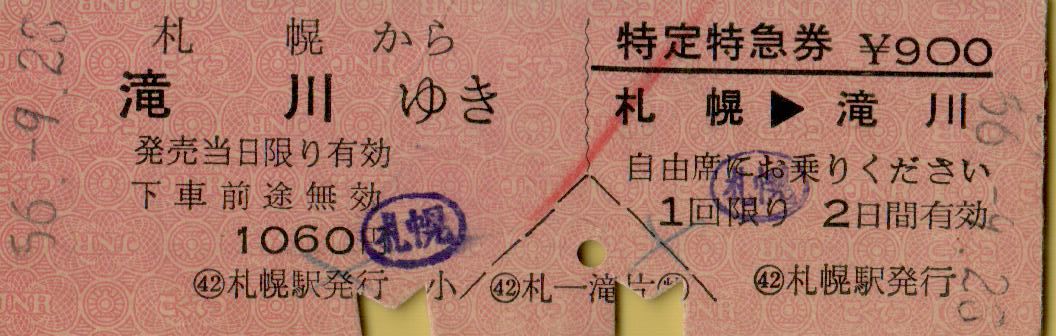 札幌から
滝川ゆき
発売当日限り有効
下車前途無効
1060円
札幌
㊷札幌駅発行
小
特定特急券 ￥900
札幌▶滝川
自由席にお乗りください
札幌
1回限り 2日間有効
㊷札幌駅発行
㊷札―滝片
56-9.23